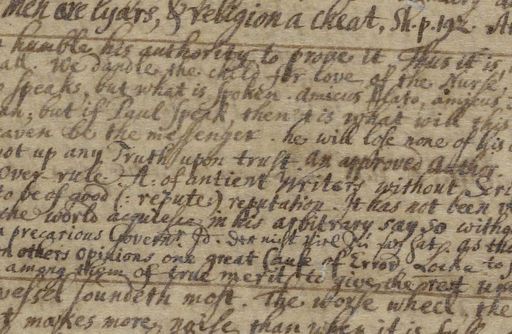 men are lyars, & religion a cheat. Sh. p. 192. At
humble his authority to prove it, Thus it is,
all. We dandle the child for love of the Nurse!
speaks, but what is spoken. Amicus Plato, amicus
an; but if Paul speak, then it is what will this
eaven be the messenger. he will lose none of his
oot up any Truth upon trust an approved Author.
over rule. A: of antient Writers without
to be of good (: repute:) reputation. It has not been
the world acquiesce in his arbitrary say so
a precarious Governt. Id.
n others opinions one great Cause of Error Locke to
among them of true merit to give the
vessel soundeth most. The worse wheel, the
t makes more noise than when it is